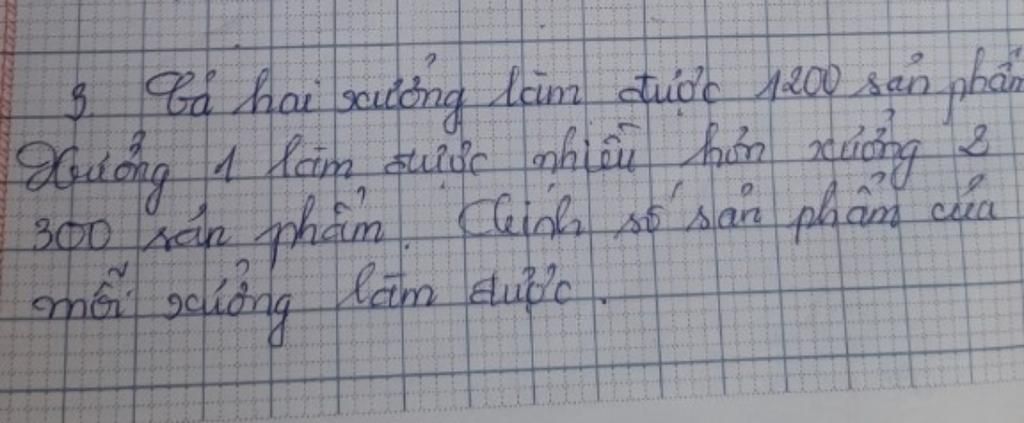 3. Cả hai xưởng làm được 1200 sản phẩm
Xưởng 1 làm được nhiều hơn xưởng 2
300 sản phẩm. Tính số sản phẩm của
mỗi xưởng làm được.